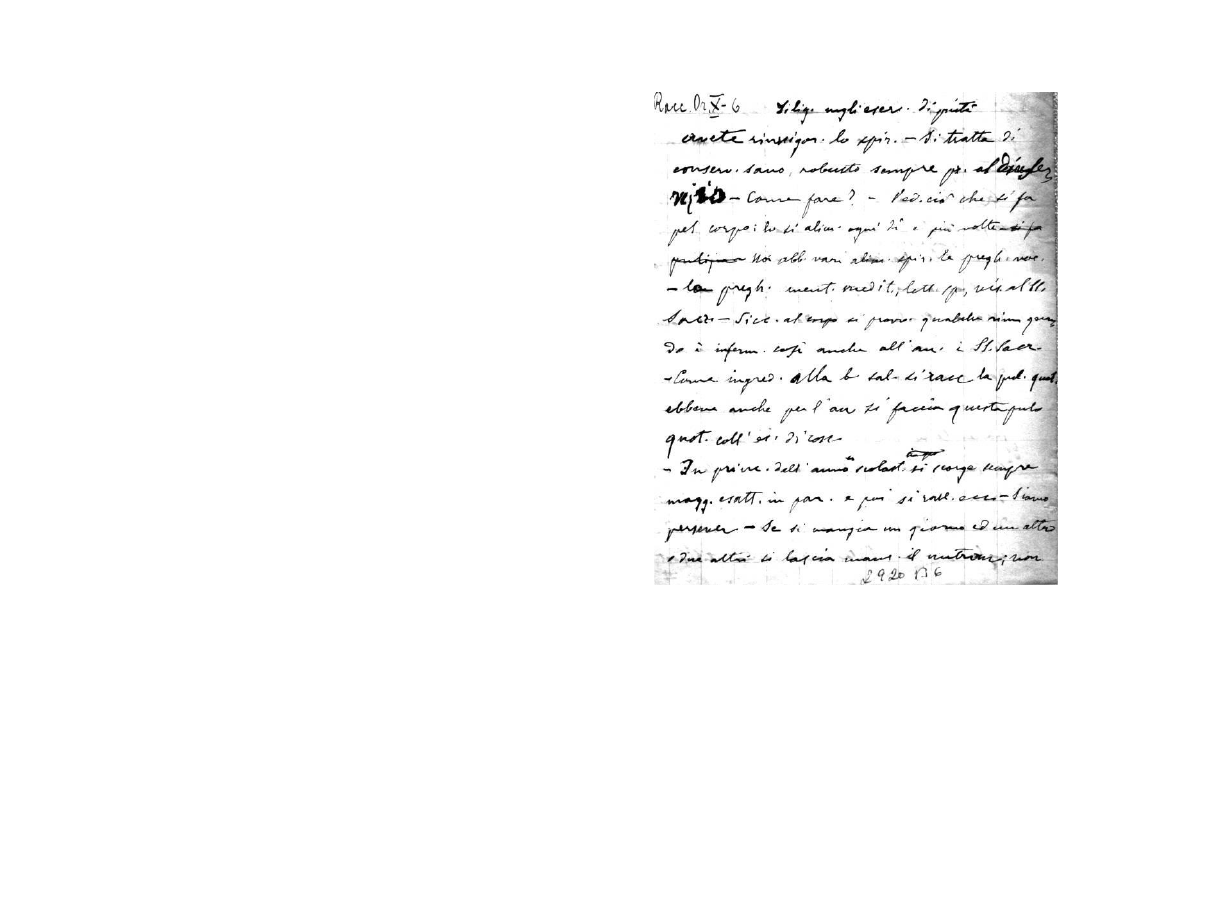 Racc. Or. X-6 Dilig. negli eser. di pietà
avete rinvigor. lo spir. - Si tratta di
conserv. sano, robusto sempre pr. al
- Come fare? - Ved. ciò che si fa
pel corpo: lo si alim. ogni dì e più volte si fa
Noi abb. vari alim. spir. le pregh. voc.
- la pregh. ment. medit., lett. sp., vis. al SS.
Sacr. - Sicc. al corpo si provv. qualche rim. quan
do è inferm. così anche all'an. i SS. Sacr.
- Come ingred. alla b. sal. si racc. la pul. quot.
ebbene anche per l'an. si faccia questa puliz
quot. coll'es. di cosc.
- In princ. dell'anno scolast. si scorge sempre
magg. esatt. in par. e poi si rall. ecc. - Siamo
persever. - Se si mangia un giorno ed un altro
e due altri si lascia manc. il nutrim., non
2920 B6